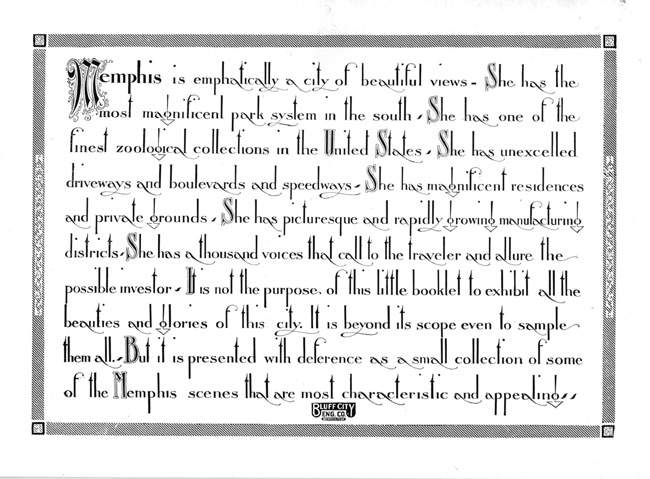 Memphis is emphatically a city of beautiful views - She has the
most magnificent park system in the south - She has one of the
finest zoological collections in the United States - She has unexcelled
driveways and boulevards and speedways - She has magnificent residences
and private grounds - She has picturesque and rapidly growing manufacturing
districts - She has a thousand voices that call to the traveler and allure the
possible investor - It is not the purpose of this little booklet to exhibit all the
beauties and glories of this city. It is beyond its scope even to sample
them all. - But it is presented with deference as a small collection of some
of the Memphis scenes that are most characteristic and appealing - -
BLUFF CITY
ENG. CO.